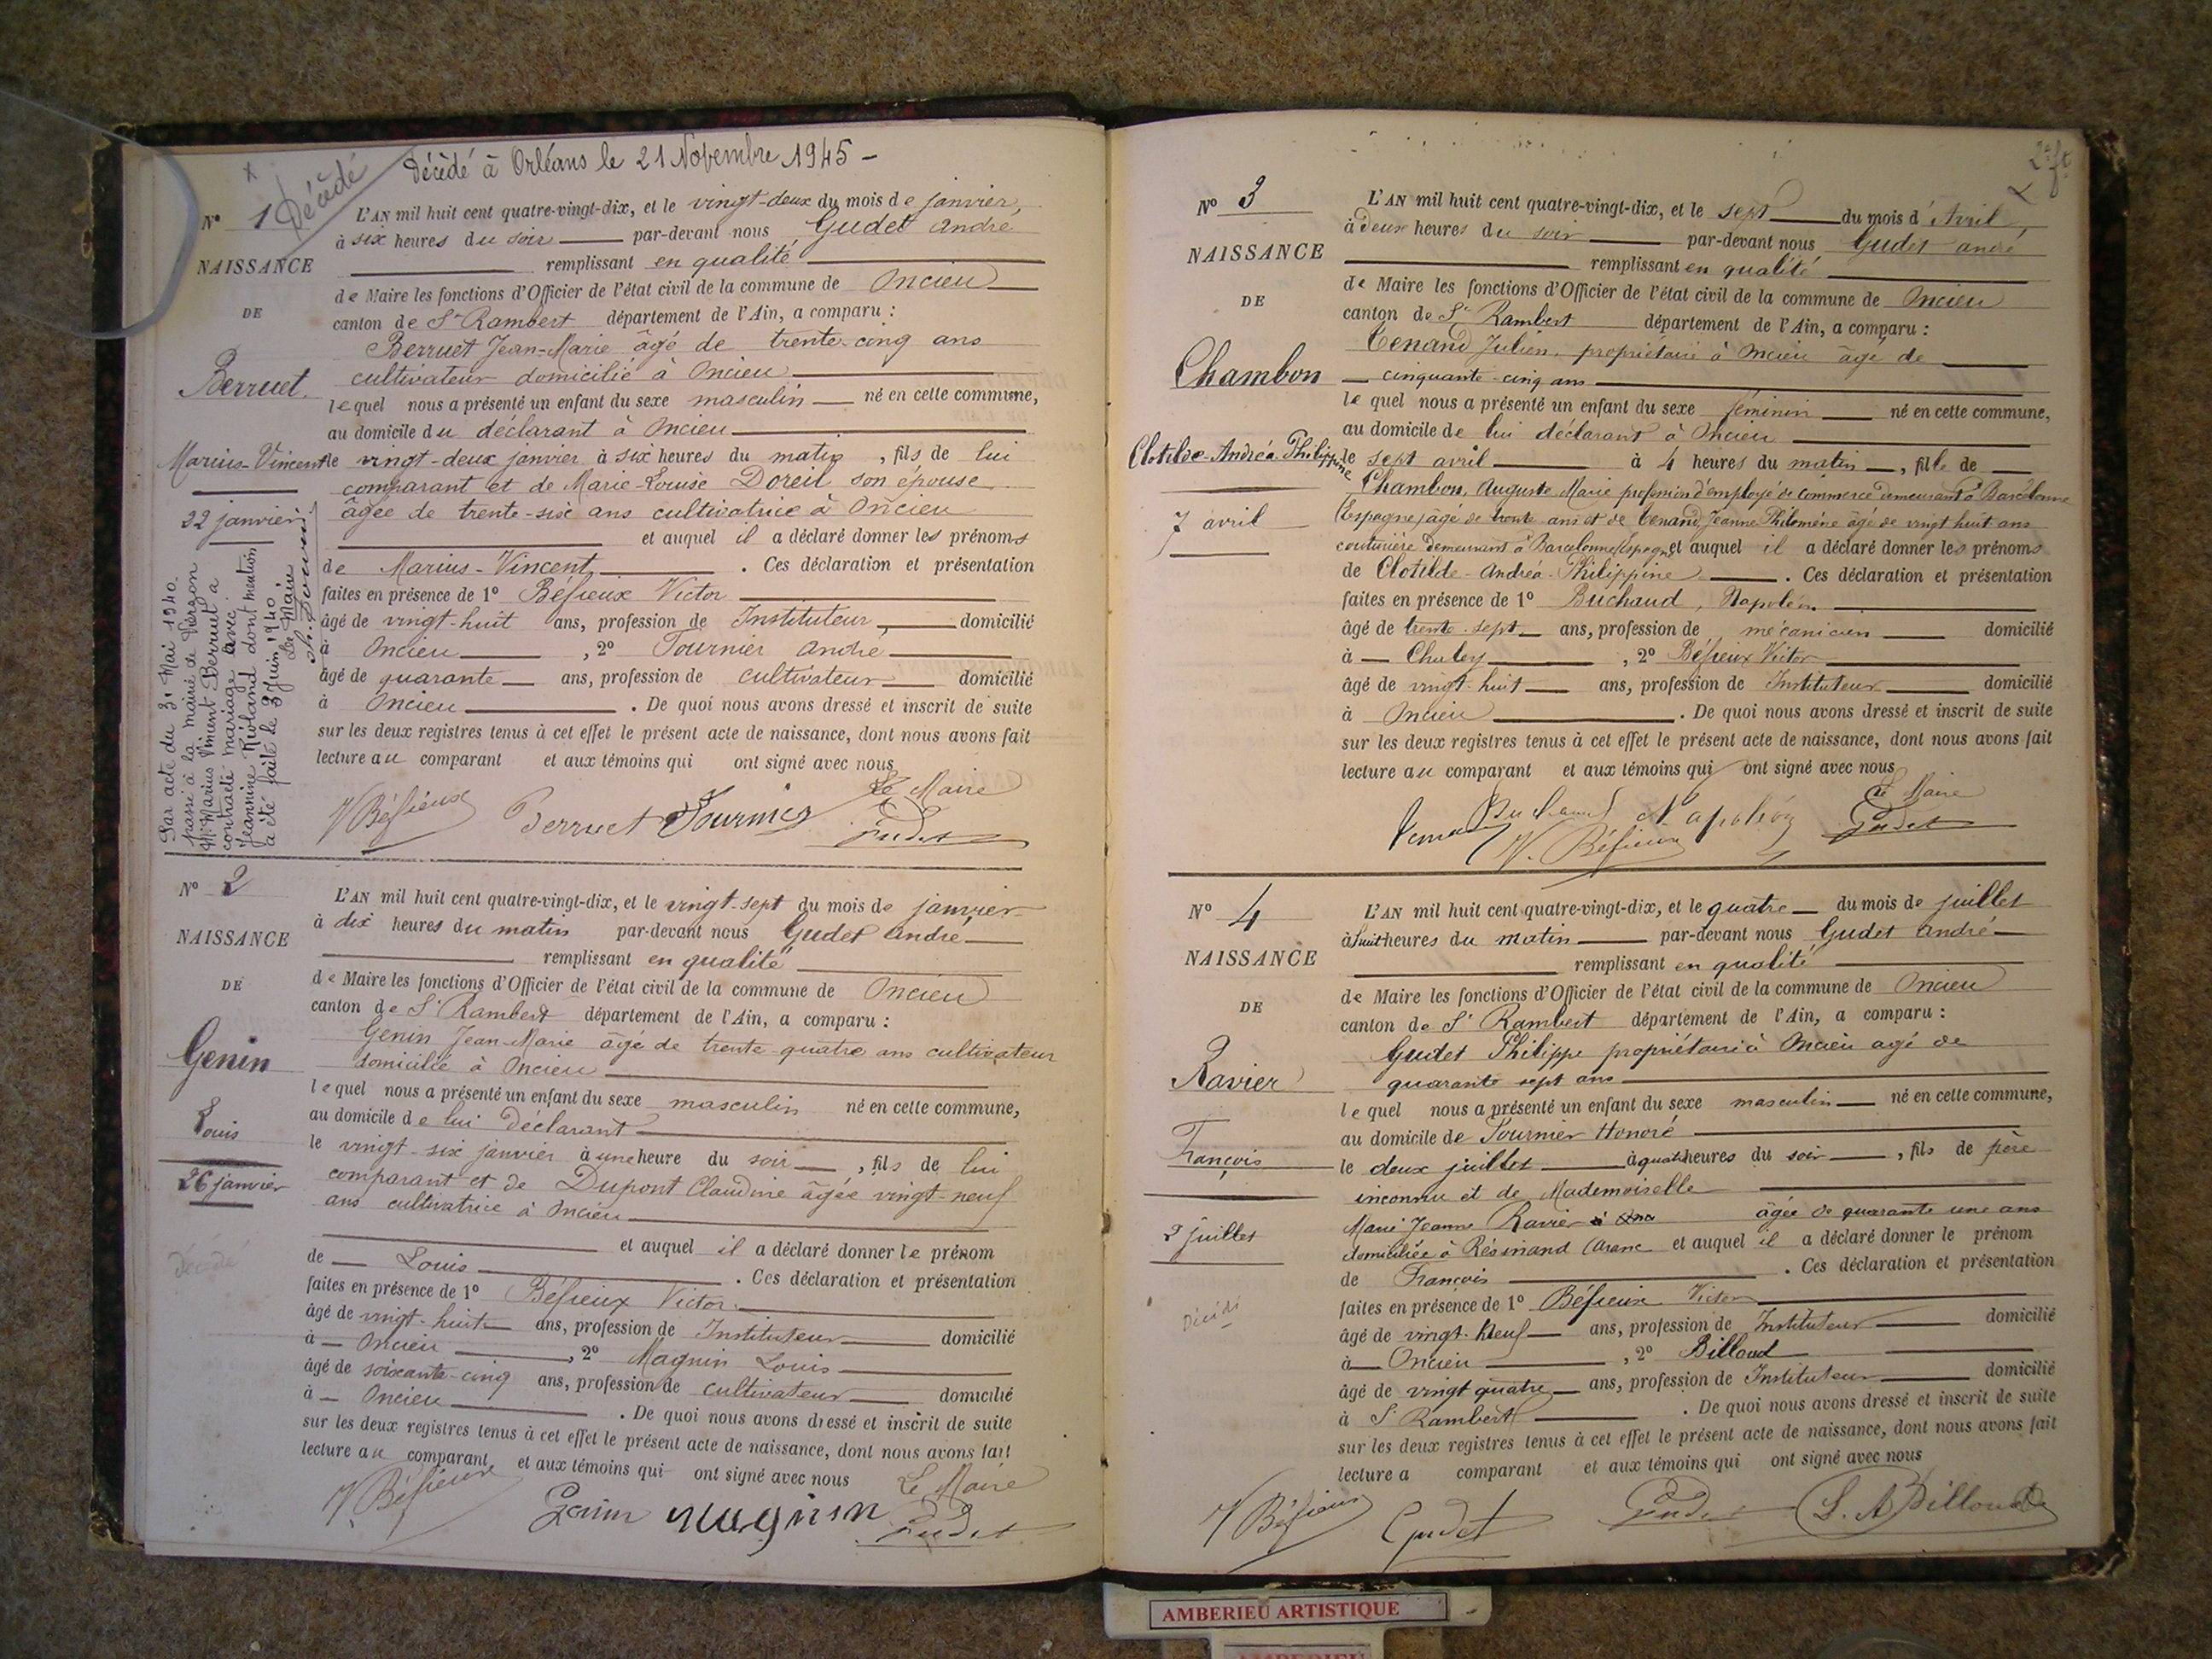 Décédé à Orléans le 21 Novembre 1945 -
Décédé
N° 1
NAISSANCE
DE
Berruet
Marius-Vincent
22 janvier
Par acte du 31 Mai 1940
passé à la mairie de Vierzon
Mr Marius Vincent Berruet a
contracté mariage avec
Jeannine Rioland dont mention
a été faite le 3 Juin 1940
Le Maire
L'AN mil huit cent quatre-vingt-dix, et le vingt-deux du mois de janvier,
à six heures du soir par-devant nous Gudet André
remplissant en qualité
de Maire les fonctions d'Officier de l'état civil de la commune de Oncieu
canton de St Rambert département de l'Ain, a comparu :
Berruet Jean-Marie âgé de trente-cinq ans
cultivateur domicilié à Oncieu
lequel nous a présenté un enfant du sexe masculin né en cette commune,
au domicile du déclarant à Oncieu
le vingt-deux janvier à six heures du matin, fils de lui
comparant et de Marie-Louise Doreil son épouse
âgée de trente-six ans cultivatrice à Oncieu
et auquel il a déclaré donner les prénoms
de Marius-Vincent. Ces déclaration et présentation
faites en présence de 1° Béfieux Victor
âgé de vingt-huit ans, profession de Instituteur, domicilié
à Oncieu, 2° Tournier André
âgé de quarante ans, profession de cultivateur domicilié
à Oncieu. De quoi nous avons dressé et inscrit de suite
sur les deux registres tenus à cet effet le présent acte de naissance, dont nous avons fait
lecture au comparant et aux témoins qui ont signé avec nous
Le Maire
V Béfieux Berruet Tournier Gudet
N° 2
NAISSANCE
DE
Genin
Louis
26 janvier
Décédé
L'AN mil huit cent quatre-vingt-dix, et le vingt-sept du mois de janvier
à dix heures du matin par-devant nous Gudet André
remplissant en qualité
de Maire les fonctions d'Officier de l'état civil de la commune de Oncieu
canton de St Rambert département de l'Ain, a comparu :
Genin Jean-Marie âgé de trente-quatre ans cultivateur
domicilié à Oncieu
lequel nous a présenté un enfant du sexe masculin né en cette commune,
au domicile de lui déclarant
le vingt-six janvier à une heure du soir, fils de lui
comparant et de Dupont Claudine âgée vingt-neuf
ans cultivatrice à Oncieu
et auquel il a déclaré donner le prénom
de Louis. Ces déclaration et présentation
faites en présence de 1° Béfieux Victor
âgé de vingt-huit ans, profession de Instituteur domicilié
à Oncieu, 2° Magnin Louis
âgé de soixante-cinq ans, profession de cultivateur domicilié
à Oncieu. De quoi nous avons dressé et inscrit de suite
sur les deux registres tenus à cet effet le présent acte de naissance, dont nous avons fait
lecture au comparant et aux témoins qui ont signé avec nous
Le Maire
V Béfieux Genin Magnin Gudet
2e ft
N° 3
NAISSANCE
DE
Chambon
Clotilde-Andréa-Philippine
7 avril
L'AN mil huit cent quatre-vingt-dix, et le sept du mois d'Avril,
à deux heures du soir par-devant nous Gudet André
remplissant en qualité
de Maire les fonctions d'Officier de l'état civil de la commune de Oncieu
canton de St Rambert département de l'Ain, a comparu :
Tenand Julien, propriétaire à Oncieu âgé de
cinquante-cinq ans
lequel nous a présenté un enfant du sexe féminin né en cette commune,
au domicile de lui déclarant à Oncieu
le sept avril à 4 heures du matin, fille de
Chambon, Auguste Marie profession d'employé de commerce demeurant à Barcelonne
(Espagne) âgé de trente ans et de Tenand Jeanne Philomène âgé de vingt huit ans
couturière demeurant à Barcelonne (Espagne) et auquel il a déclaré donner les prénoms
de Clotilde-Andréa-Philippine. Ces déclaration et présentation
faites en présence de 1° Buchaud, Napoléon
âgé de trente-sept ans, profession de mécanicien domicilié
à Chaley, 2° Béfieux Victor
âgé de vingt-huit ans, profession de Instituteur domicilié
à Oncieu. De quoi nous avons dressé et inscrit de suite
sur les deux registres tenus à cet effet le présent acte de naissance, dont nous avons fait
lecture au comparant et aux témoins qui ont signé avec nous
Le Maire
Tenand Buchaud Napoléon Gudet
V. Béfieux
N° 4
NAISSANCE
DE
Ravier
François
2 juillet
Décédé
L'AN mil huit cent quatre-vingt-dix, et le quatre du mois de juillet
à huit heures du matin par-devant nous Gudet André
remplissant en qualité
de Maire les fonctions d'Officier de l'état civil de la commune de Oncieu
canton de St Rambert département de l'Ain, a comparu :
Gudet Philippe propriétaire à Oncieu agé de
quarante sept ans
lequel nous a présenté un enfant du sexe masculin né en cette commune,
au domicile de Tournier Honoré
le deux juillet à quatre heures du soir, fils de père
inconnu et de Mademoiselle
Marie Jeanne Ravier âgée de quarante une ans
domiciliée à Résinand (Aranc et auquel il a déclaré donner le prénom
de François. Ces déclaration et présentation
faites en présence de 1° Béfieux Victor
âgé de vingt-neuf ans, profession de Instituteur domicilié
à Oncieu, 2° Billoud
âgé de vingt quatre ans, profession de Instituteur domicilié
à St Rambert. De quoi nous avons dressé et inscrit de suite
sur les deux registres tenus à cet effet le présent acte de naissance, dont nous avons fait
lecture a comparant et aux témoins qui ont signé avec nous
V Béfieux Gudet Gudet L. A Billoud
AMBERIEU ARTISTIQUE
AMBERIEU